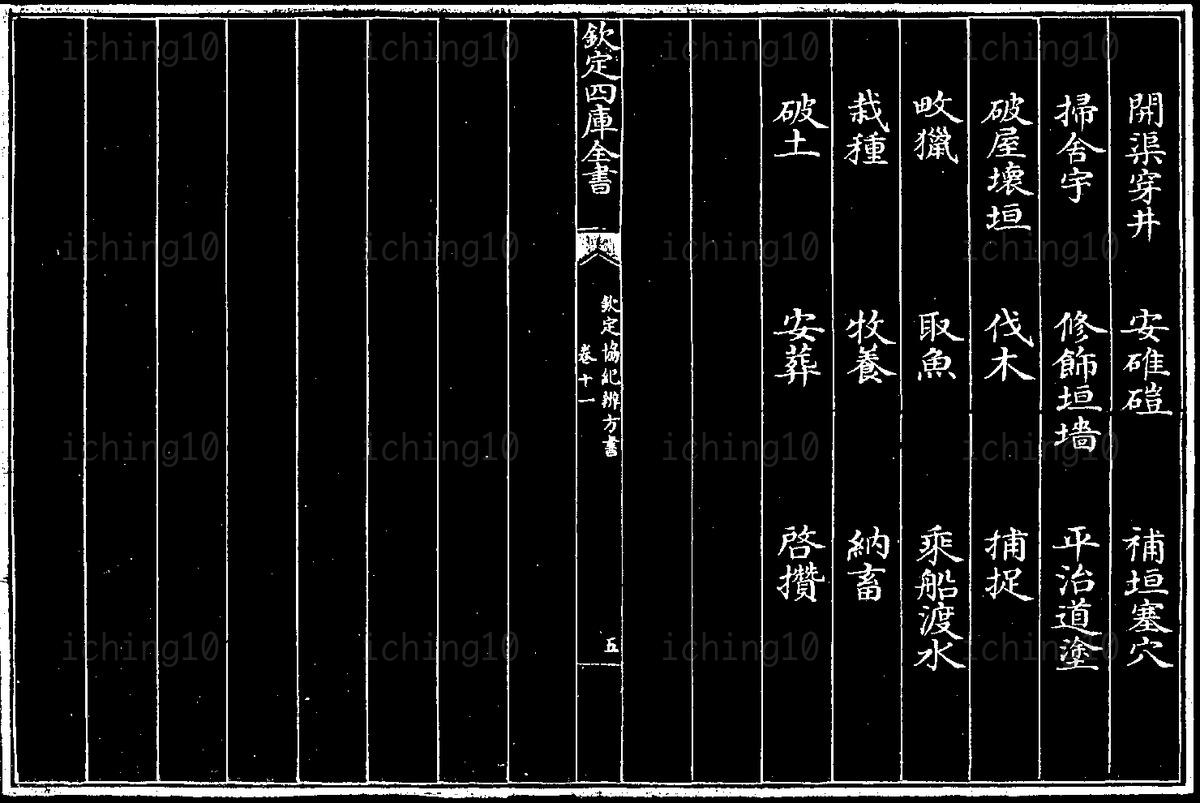 開渠穿井 安碓磑 補垣塞穴
掃舍宇 修飾垣墻 平治道塗
破屋壞垣 伐木 捕捉
畋獵 取魚 乘船渡水
栽種 牧養 納畜
破土 安葬 啓攢
欽定四庫全書
欽定協紀辨方書
卷十一
五
iching10 iching10 iching10
iching10 iching10 iching10
iching10 iching10 iching10
iching10 iching10 iching10